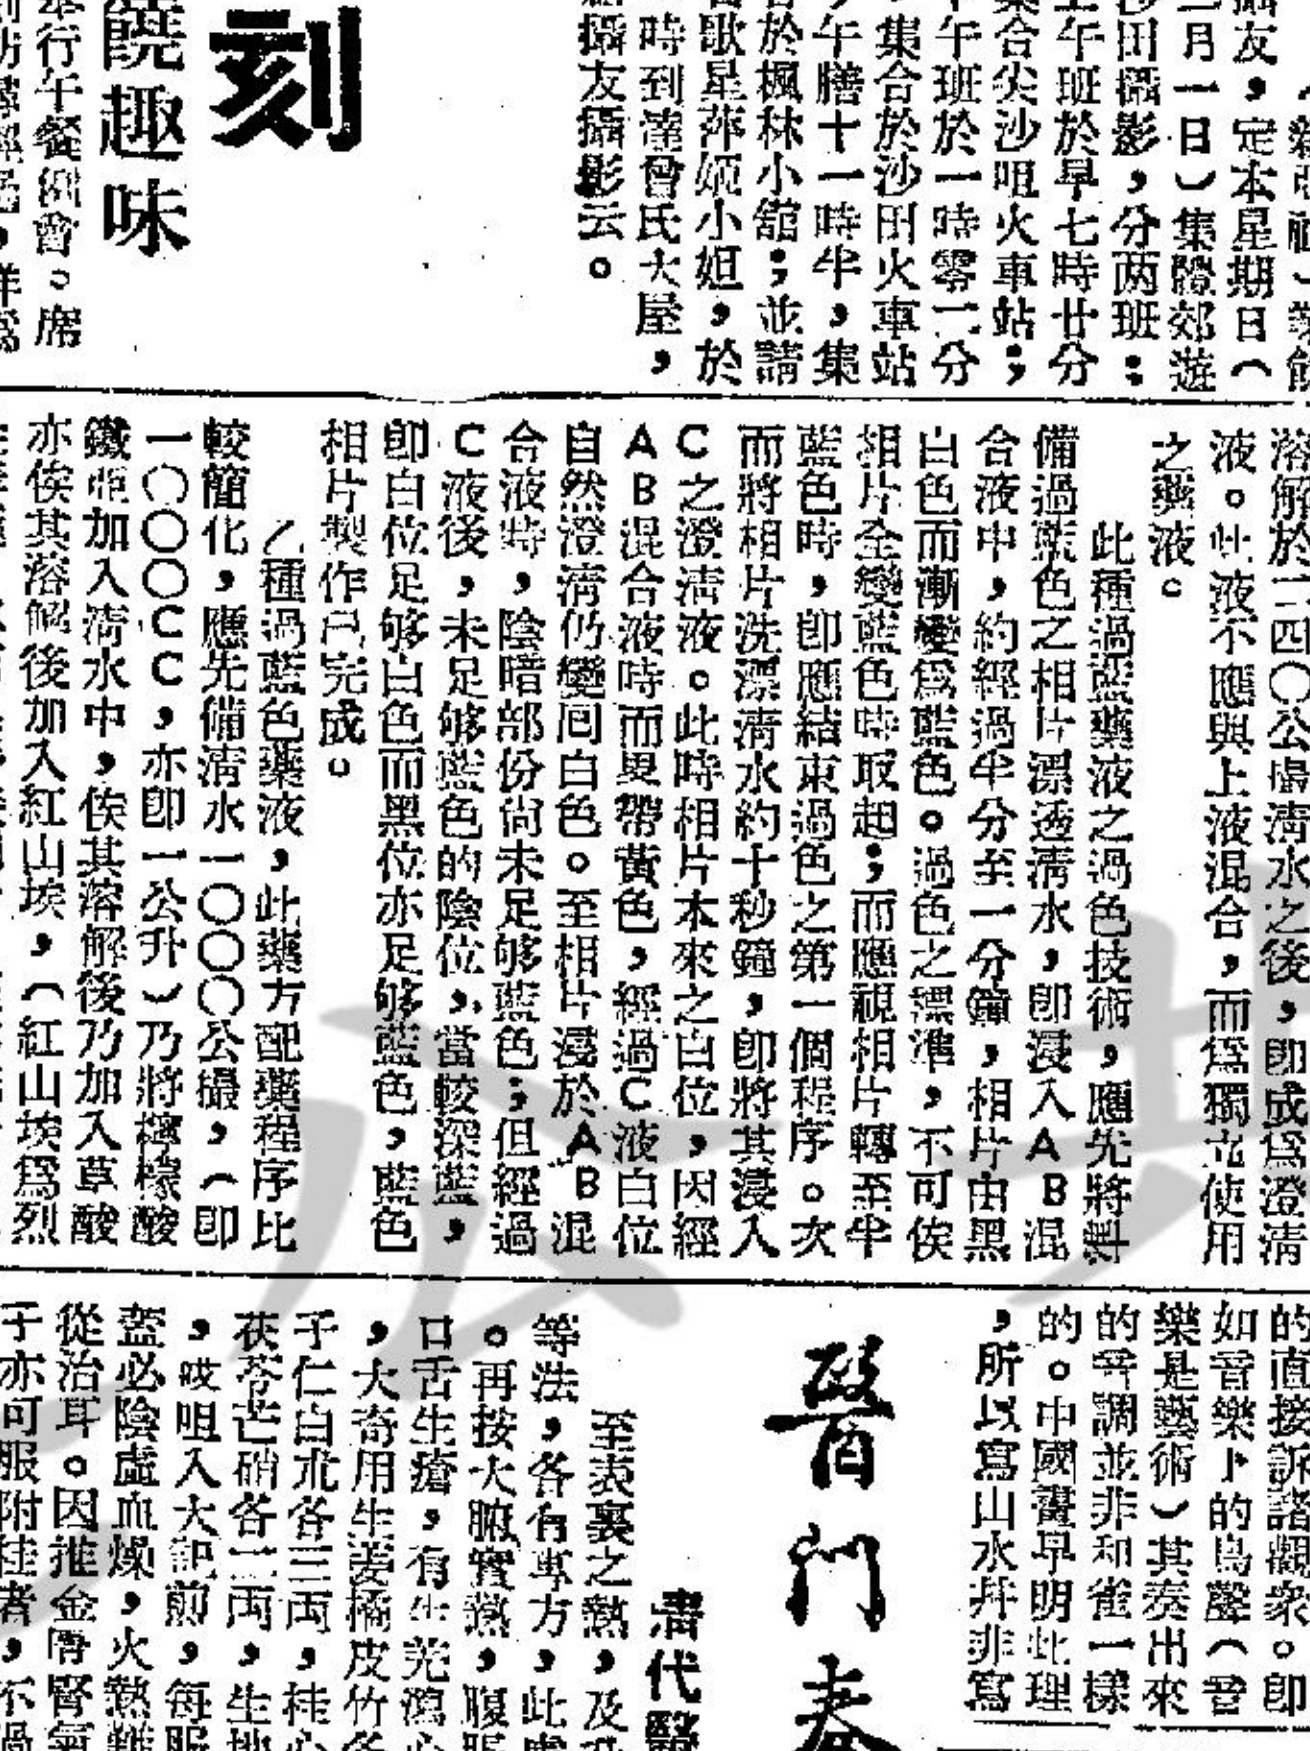 攝友,定本星期日(
二月一日)集體郊遊
沙田攝影,分两班:
上午班於早七時廿分
集合尖沙咀火車站;
下午班於一時零二分
集合於沙田火車站
午膳十一時半,集
於楓林小舘;並請
歌星萍姬小姐,於
時到達曾氏大屋,
攝友攝影云。
刻
饒趣味
舉行午餐例會。席
溶解於二四〇公撮淸水之後,卽成爲澄淸
液。此液不應與上液混合,而爲獨立使用
之藥液。
此種過藍藥液之過色技術,應先將對
備過藍色之相片漂透淸水,卽浸入AB混
合液中,約經過半分至一分鐘,相片由黑
白色而漸變爲藍色。過色之標準,不可俟
相片全變藍色時取起;而應視相片轉至半
藍色時,卽應結束過色之第一個程序。次
而將相片洗漂淸水約十秒鐘,卽將其浸入
C之澄淸液。此時相片本來之白位,因經
AB混合液時而畧帶黃色,經過C液白位
自然澄淸仍變囘白色。至相片浸於AB混
合液時,陰暗部份尙未足够藍色;但經過
C液後,未足够藍色的陰位,當較深藍,
卽白位足够白色而黑位亦足够藍色,藍色
相片製作已完成。
乙種過藍色藥液,此藥方配藥程序比
較簡化,應先備淸水一〇〇〇公撮,(卽
一〇〇〇CC,亦卽一公升)乃將檸檬酸
鐵 加入淸水中,俟其溶解後乃加入草酸
亦俟其溶解後加入紅山埃,(紅山埃爲烈
的直接訴諸觀衆。卽
如音樂上的鳥聲(音
樂是藝術)其奏出來
的音調並非和雀一樣
的。中國畫早明此理
,所以寫山水幷非寫
醫門春
淸代醫
至表裏之熱,及
等法,各有專方,此
。再按大腑實熱,腹
口舌生瘡,有生芄瀉心
,大奇用生姜橘皮竹
子仁白朮各三両,桂心
茯苓芒硝各二両,生地
,㕮咀入大 煎,每服
蓋必陰虛血燥,火熱難
從治耳。因推金匱腎氣
子亦可服附桂者,不過